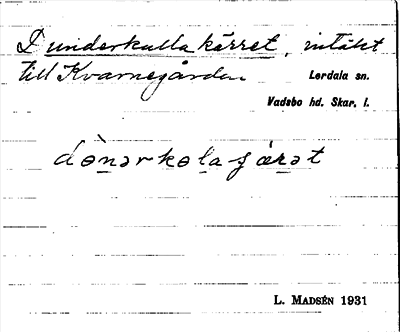 Dunderkulla kärret, intäkt
till Kvarnegården
Lerdala sn.
Vadsbo hd. Skar. l.
L. MADSÉN 1931